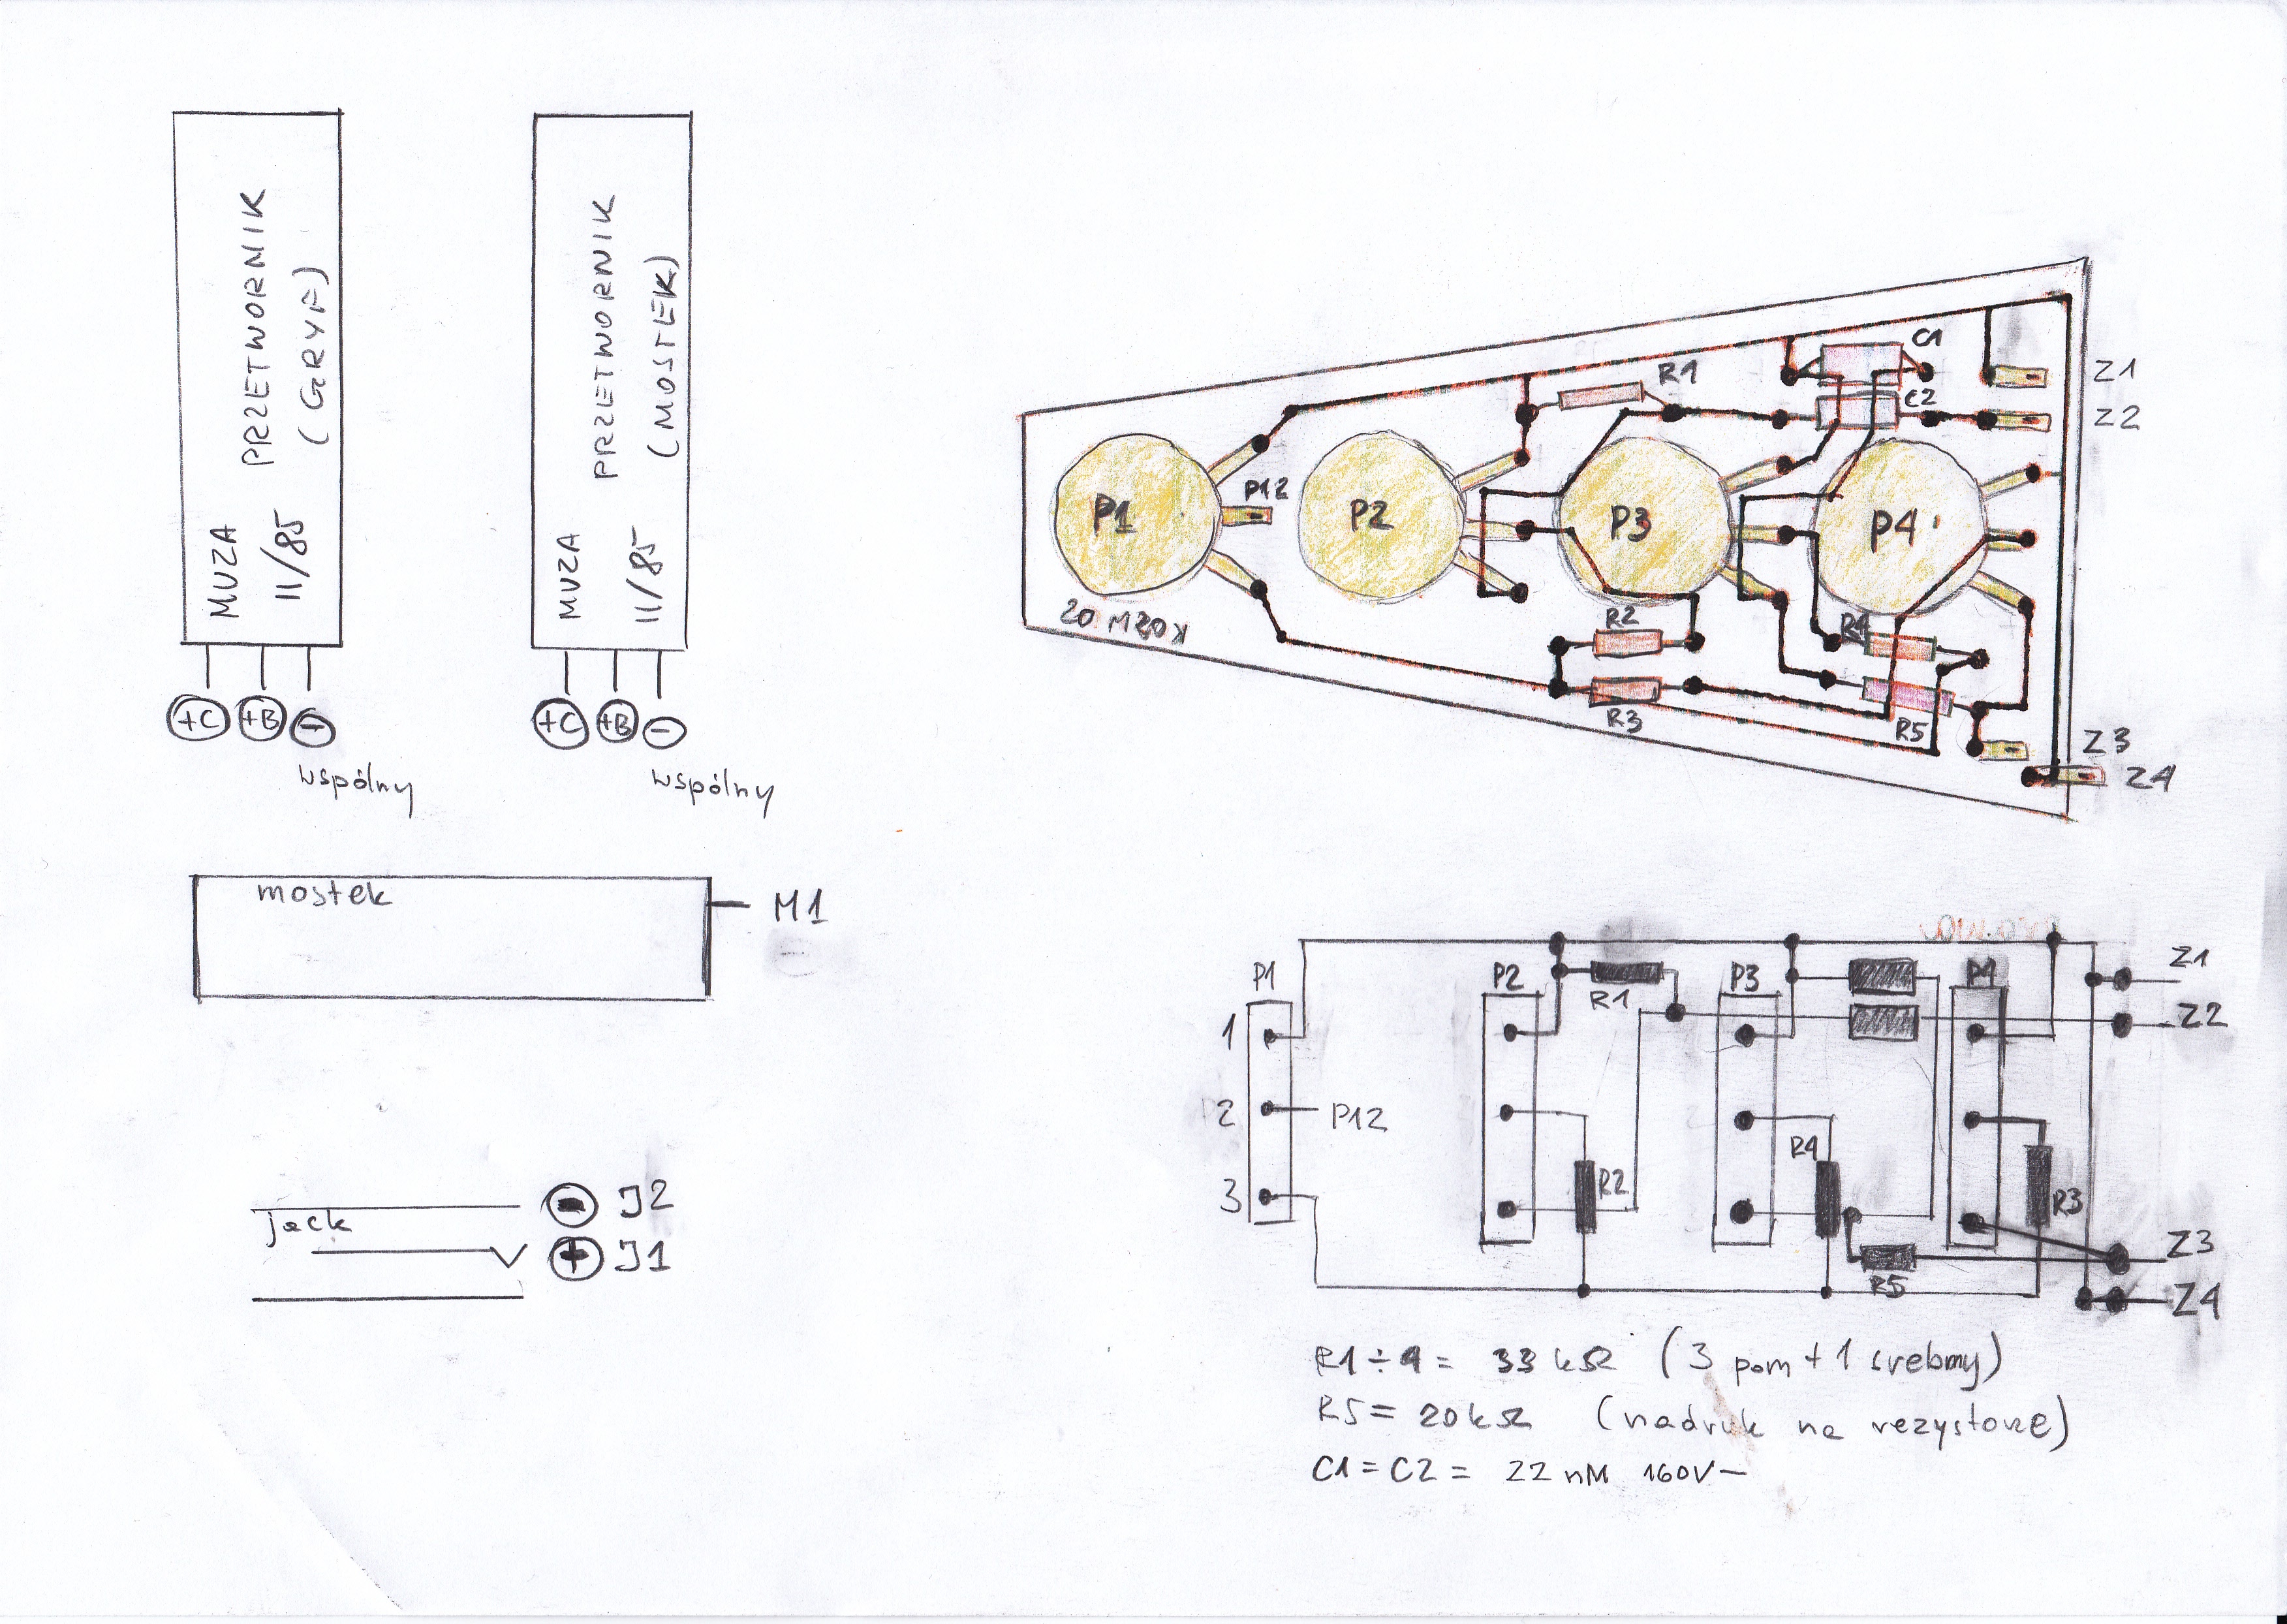 MUZA
PRZETWORNIK
11/85
(GRYF)
+C
+B
-
wspólny
MUZA
PRZETWORNIK
11/85
(MOSTEK)
+C
+B
-
wspólny
mostek
M1
jack
- J2
+ J1
P1
P12
P2
P3
P4
R1
C1
C2
Z1
Z2
R2
R3
R4
R5
Z3
Z4
P1
1
2
3
P12
P2
R1
P3
P4
Z1
Z2
R2
R4
R3
R5
Z3
Z4
R1÷4 = 33 kΩ (3 pom + 1 srebrny)
R5 = 20kΩ (nadruk na rezystorze)
C1 = C2 = 22 nM 160V-